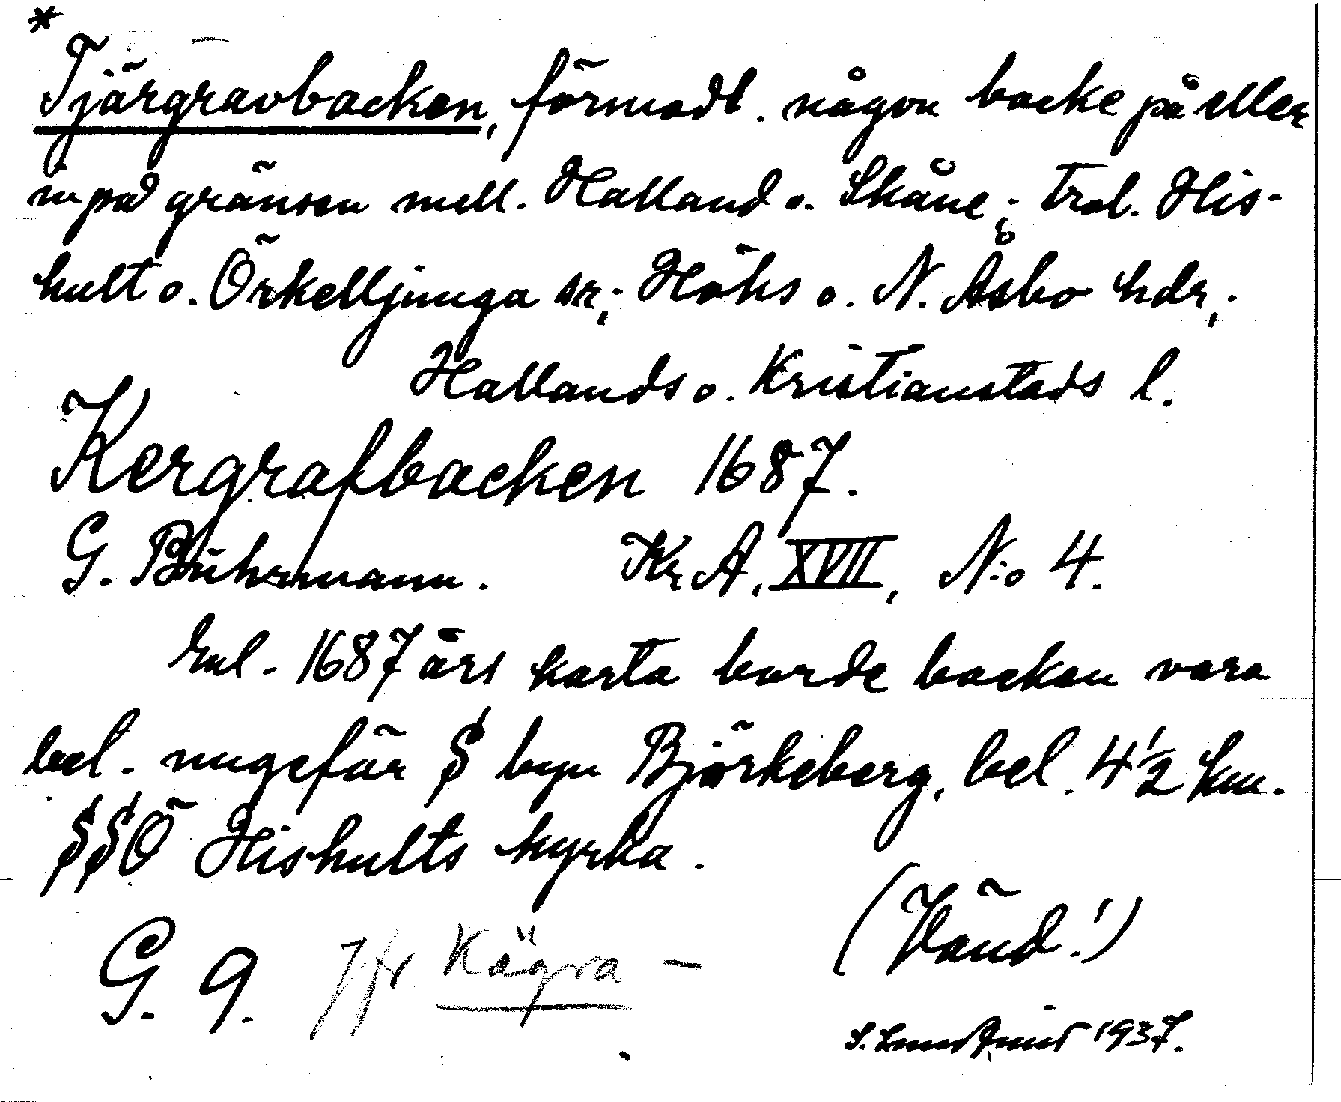 *
Tjärgravbacken, förmodl. någon backe på eller
inpå gränsen mell. Halland o. Skåne; trol. His-
hult o. Örkelljunga sr; Höks o. N. Åsbo hdr,;
Hallands o. Kristianstads l.
Kergrafbacken 1687.
G. Bührmann. Kr. A. XVII, N:o 4.
Enl. 1687 års karta borde backen vara
bel. ungefär S byn Björkeberg, bel. 4 1/2 km.
SSÖ Hishults kyrka.
(Vänd!)
G. 9. Jfr Kägra -
S. 1937.